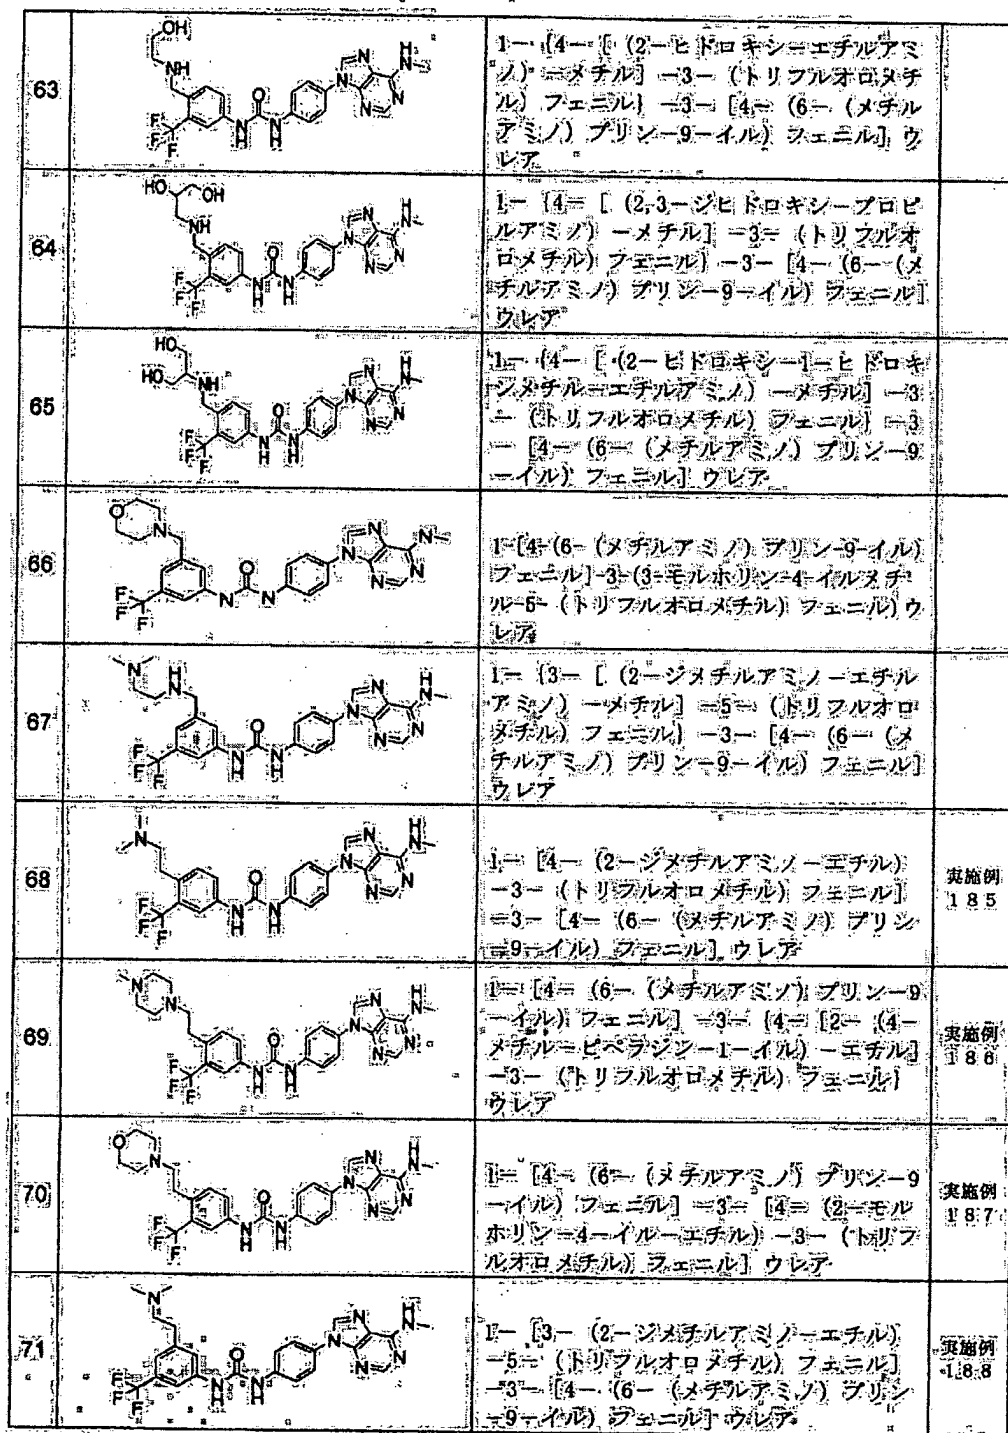 63
1-{4-[(2-ヒドロキシ-エチルアミ
ノ)-メチル]-3-(トリフルオロメチ
ル)フェニル}-3-[4-(6-(メチル
アミノ)プリン-9-イル)フェニル]ウ
レア
64
1-{4-[(2,3-ジヒドロキシ-プロピ
ルアミノ)-メチル]-3-(トリフルオ
ロメチル)フェニル}-3-[4-(6-(メ
チルアミノ)プリン-9-イル)フェニル]
ウレア
65
1-{4-[(2-ヒドロキシ-1-ヒドロキ
シメチル-エチルアミノ)-メチル]-3
-(トリフルオロメチル)フェニル}-3
-[4-(6-(メチルアミノ)プリン-9
-イル)フェニル]ウレア
66
1-[4-(6-(メチルアミノ)プリン-9-イル)
フェニル]-3-(3-モルホリン-4-イルメチ
ル-5-(トリフルオロメチル)フェニル)ウ
レア
67
1-{3-[(2-ジメチルアミノ-エチル
アミノ)-メチル]-5-(トリフルオロ
メチル)フェニル}-3-[4-(6-(メ
チルアミノ)プリン-9-イル)フェニル]
ウレア
68
1-[4-(2-ジメチルアミノ-エチル)
-3-(トリフルオロメチル)フェニル]
-3-[4-(6-(メチルアミノ)プリン
-9-イル)フェニル]ウレア
実施例
185
69
1-[4-(6-(メチルアミノ)プリン-9
-イル)フェニル]-3-{4-[2-(4-
メチル-ピペラジン-1-イル)-エチル]
-3-(トリフルオロメチル)フェニル}
ウレア
実施例
186
70
1-[4-(6-(メチルアミノ)プリン-9
-イル)フェニル]-3-[4-(2-モル
ホリン-4-イル-エチル)-3-(トリフ
ルオロメチル)フェニル]ウレア
実施例
187
71
1-[3-(2-ジメチルアミノ-エチル)
-5-(トリフルオロメチル)フェニル]
-3-[4-(6-(メチルアミノ)プリン
-9-イル)フェニル]ウレア
実施例
188